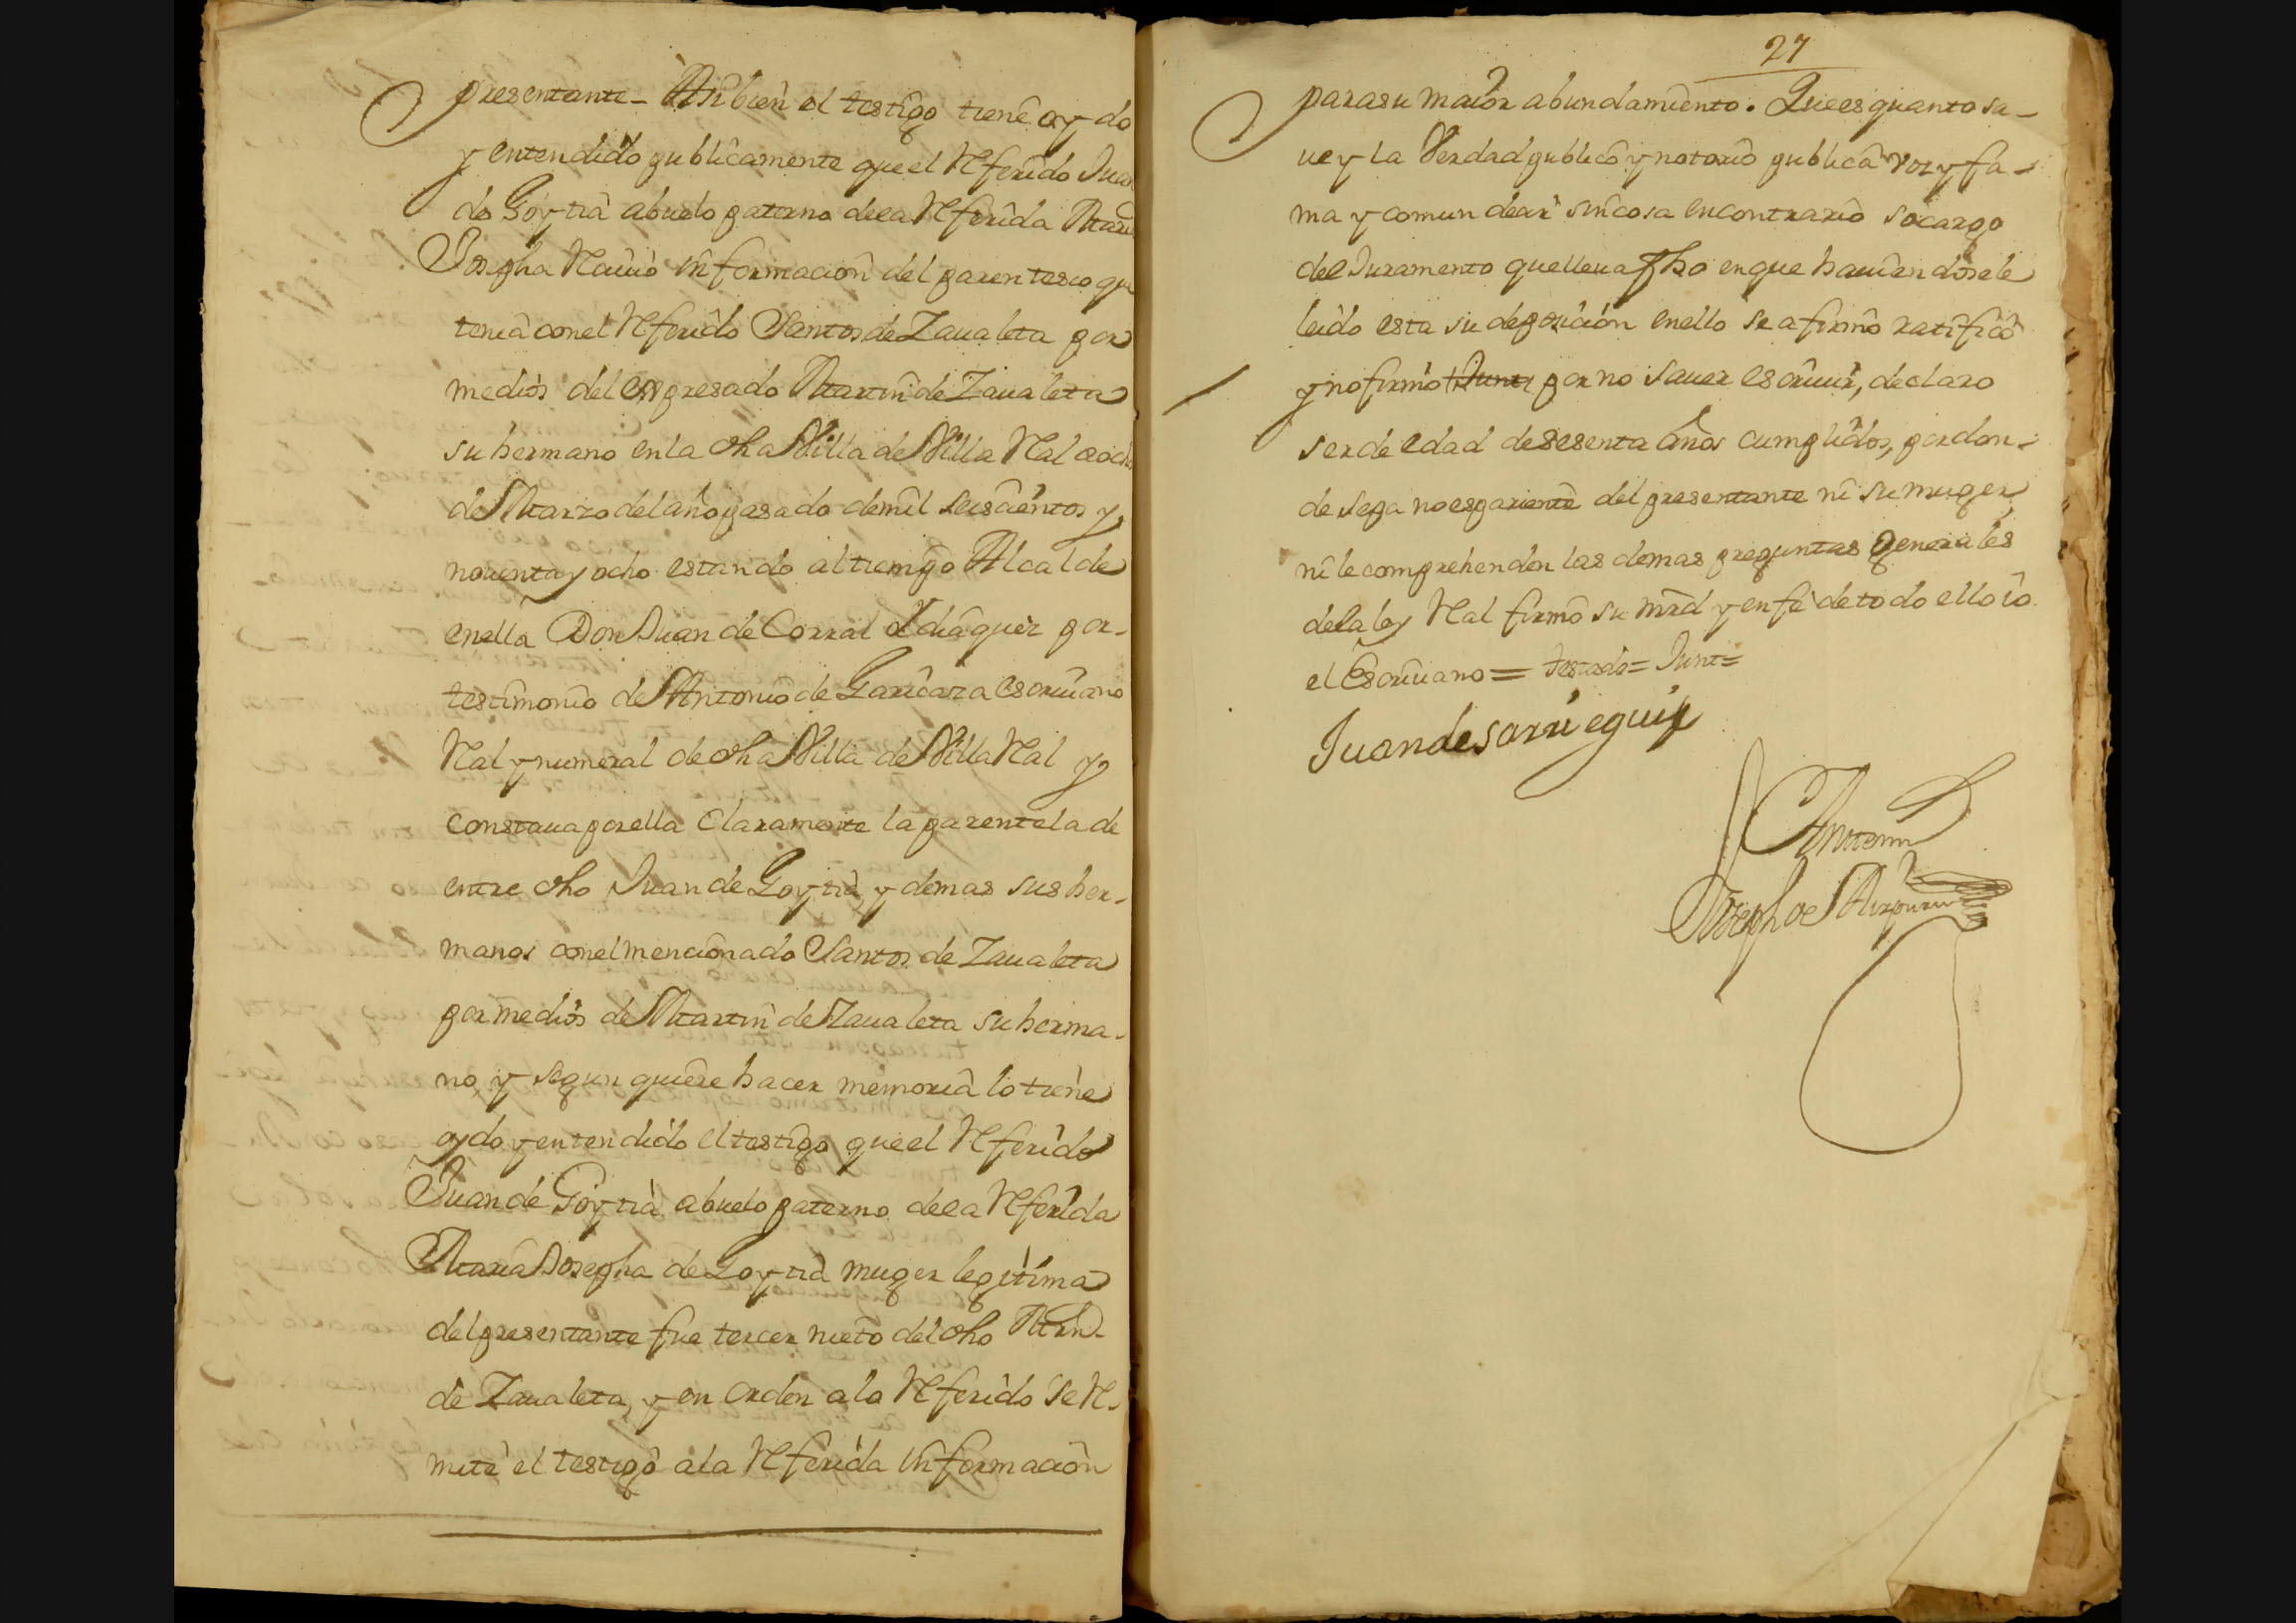 presentante - Asi bien el testigo tiene oydo
y entendido publicamente que el Referido Juan
de Goytia abuelo paterno de la Referida Maria
Josepha Reciuio informacion del parentesco que
tenia con el Referido Santos de Zaualeta por
medios del expresado Martin de Zaualeta
su hermano en la dha Villa de Villa Real a ocho
de Marzo del año pasado de mil seiscientos y
nouenta y ocho estando al tiempo Alcalde
en ella Don Juan de Corral Ydiaquez por
testimonio de Antonio de Garicaza escriuano
Real y numeral de dha Villa de Villa Real y
constaua por ella claramente la parentela de
entre dho Juan de Goytia, y demas sus her-
manos con el mencionado Santos de Zaualeta
por medios de Martin de Zaualeta su herma-
no, y segun quiere hacer memoria lo tiene
oydo y entendido el testigo que el Referido
Juan de Goytia abuelo paterno de la Referida
Maria Josepha de Goytia muger legitima
del presentante fue tercer nieto del dho Mrn
de Zaualeta, y en orden a lo Referido se Re-
mite el testigo a la Referida informacion
27
para su maior abundamiento. Que es quanto sa-
ue y la Verdad publico y notorio publica voz y fa-
ma y comun decir sin cosa en contrario so cargo
del Juramento que lleua fho en que hauiendosele
leido esta su deposicion en ello se afirmo ratifico
y no firmo Junt por no sauer escriuir, declaro
ser de edad de sesenta años cumplidos, por don-
de sepa no es pariente del presentante ni su muger,
ni le comprehenden las demas preguntas generales
de la ley Real firmo su mrd y en fe de todo ello io
el Escriuano = testado = Junt =
Juan de sarriegui
Antemi
Joseph de Aizpuru